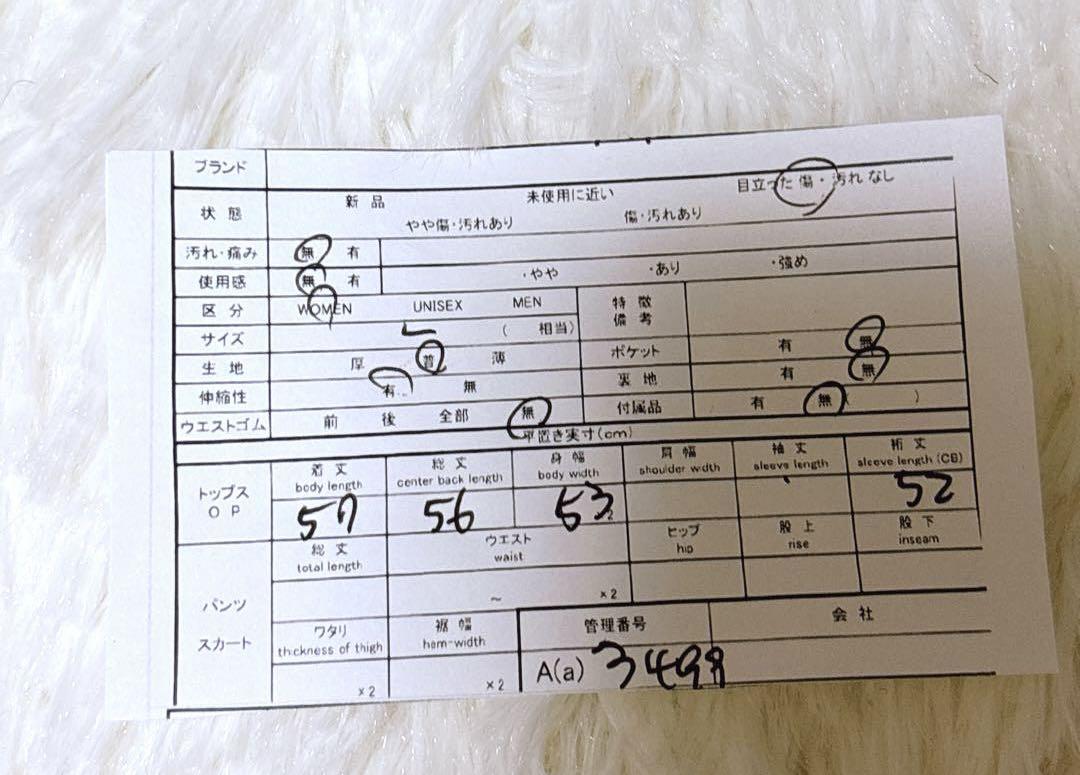 ブランド
状態 新品 未使用に近い 目立った傷・汚れなし
やや傷・汚れあり 傷・汚れあり
汚れ・痛み 無 有
使用感 無 有 ・やや ・あり ・強め
区分 WOMEN UNISEX MEN 特徴 備考
サイズ ( 相当)
生地 厚 普 薄 ポケット 有 無
伸縮性 有 無 裏地 有 無
ウエストゴム 前 後 全部 無 付属品 有 無 ( )
平置き実寸(cm)
トップス OP
着丈 総丈 身幅 肩幅 袖丈 裄丈
body length center back length body width shoulder wdth sleeve length sleeve length (CB)
57 56 53 52
総丈 ウエスト ヒップ 股上 股下
total length waist hip rise inseam
パンツ ～ ×2
スカート
ワタリ 裾幅 管理番号 会社
thickness of thigh hem-width
×2 ×2 A(a) 3498